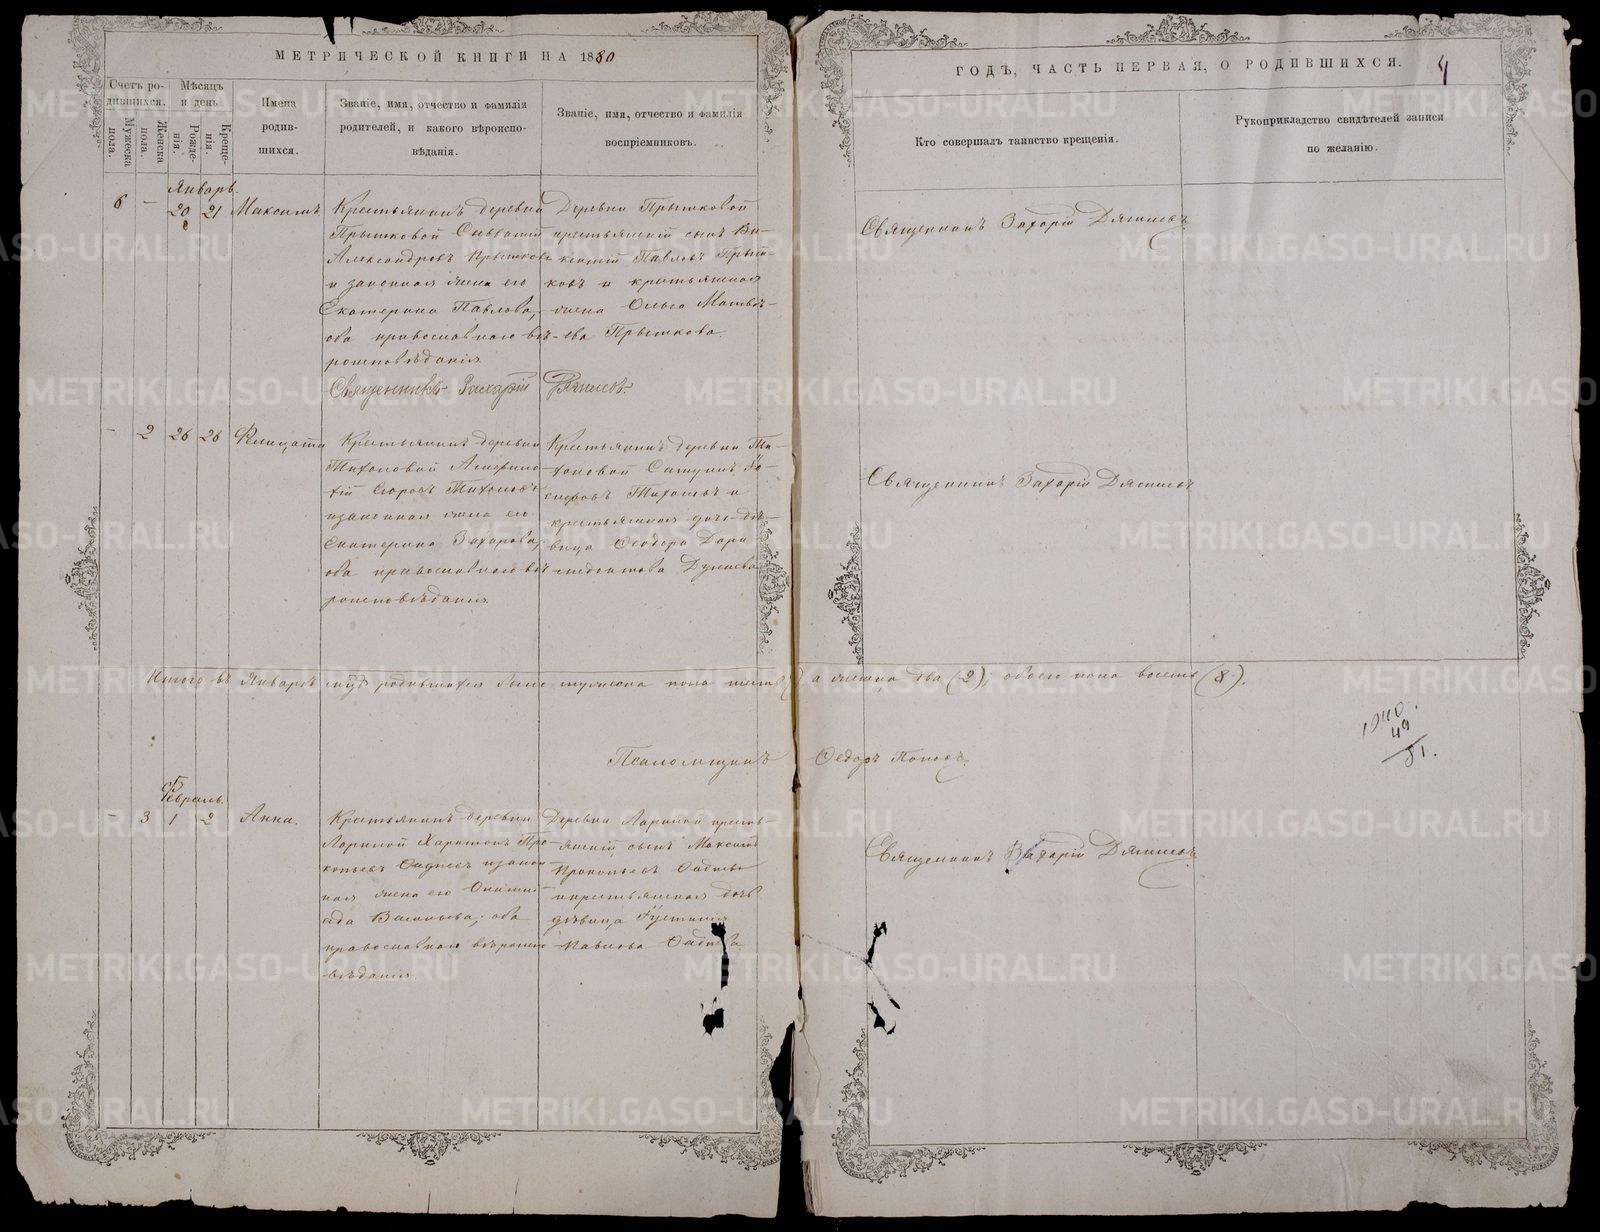 МЕТРИЧЕСКОЙ КНИГИ НА 1880
ГОДЪ, ЧАСТЬ ПЕРВАЯ, О РОДИВШИХСЯ.
4
Счетъ ро-
дившихся.
Мужеска
пола.
Женска
пола.
Мѣсяцъ
и день
Рожде-
нія.
Креще-
нія.
Имена
родив-
шихся.
Званіе, имя, отчество и фамилія
родителей, и какого вѣроиспо-
вѣданія.
Званіе, имя, отчество и фамилія
воспріемниковъ.
Кто совершалъ таинство крещенія.
Рукоприкладство свидѣтелей записи
по желанію.
Январь.
6 — 20 21 Максимъ
Крестьянинъ деревни
Прытковой
Александровъ Прытковъ
и законная жена его
Екатерина Павлова,
оба православнаго вѣ-
роисповѣданія
Деревни Прытковой
крестьянскій сынъ Ви-
кентій Павловъ Прыт-
ковъ и крестьянская
жена Ольга Матвѣ-
ева Прыткова.
Священникъ Захарій Дягилевъ
Священникъ Захарій Дягилевъ.
- 2 26 26 Фелицата
Крестьянинъ деревни
Тихоновой
Тихоновъ
и законная жена его
Екатерина Захарова,
оба православнаго вѣ-
роисповѣданія.
Крестьянинъ деревни Ти-
хоновой
Тихоновъ и
крестьянская дочь дѣ-
вица Ѳеодора
Дунаева
Священникъ Захарій Дягилевъ
Итого въ Январѣ мцѣ родившихся было мужеска пола шесть а женска два (2), обоего пола восемь (8).
Псаломщикъ Ѳедоръ Поповъ.
1940.
49
81.
Февраль.
- 3 1 2 Анна.
Крестьянинъ деревни
Лариной Харитонъ Про-
копьевъ и закон-
ная жена его
Васильева, оба
православнаго вѣроиспо-
вѣданія.
Деревни Лариной кресть-
янскій сынъ Максимъ
Прокопьевъ
и крестьянская дочь
дѣвица Устинія
Павлова
Священникъ Захарій Дягилевъ
METRIKI.GASO-URAL.RU